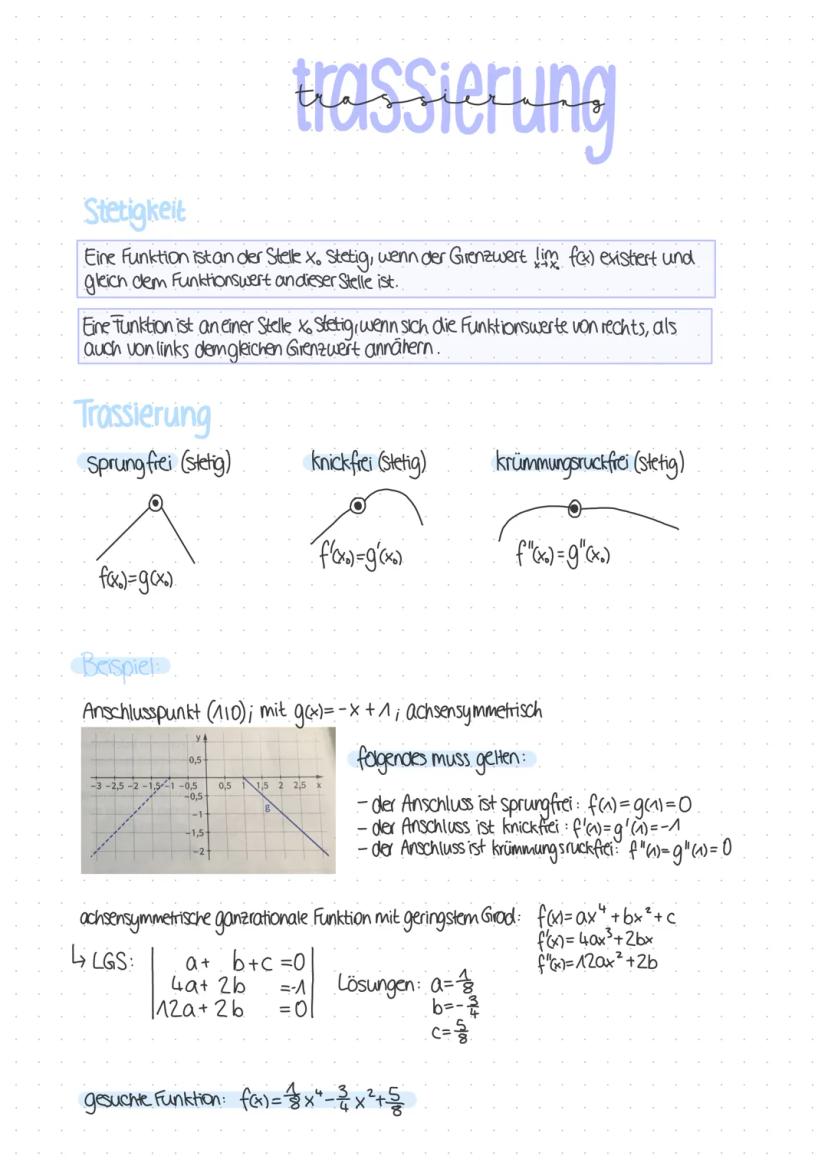 trassierung
trassierung
Stetigkeit
Eine Funktion ist an der Stelle x₀ stetig, wenn der Grenzwert lim x→x₀ f(x) existiert und
gleich dem Funktionswert an dieser Stelle ist.
Eine Funktion ist an einer Stelle x₀ stetig, wenn sich die Funktionswerte von rechts, als
auch von links dem gleichen Grenzwert annähern.
Trassierung
sprungfrei (stetig) knickfrei (stetig) krümmungsruckfrei (stetig)
f(x₀)=g(x₀) f'(x₀)=g'(x₀) f''(x₀)=g''(x₀)
Beispiel:
Anschlusspunkt (1|0); mit g(x)=-x+1; achsensymmetrisch
y
0,5
-3 -2,5 -2 -1,5 -1 -0,5 0,5 1,5 2 2,5 x
-0,5
g
-1
-1,5
-2
folgendes muss gelten:
- der Anschluss ist sprungfrei: f(1)=g(1)=0
- der Anschluss ist knickfrei: f'(1)=g'(1)=-1
- der Anschluss ist krümmungsruckfrei: f''(1)=g''(1)=0
achsensymmetrische ganzrationale Funktion mit geringstem Grad: f(x)=ax⁴+bx²+c
f'(x)=4ax³+2bx
f''(x)=12ax²+2b
↳ LGS: | a+ b+c =0 |
| 4a+ 2b =-1 |
| 12a+ 2b =0 |
Lösungen: a=1/8
b=-3/4
c=5/8
gesuchte Funktion: f(x)=1/8x⁴-3/4x²+5/8